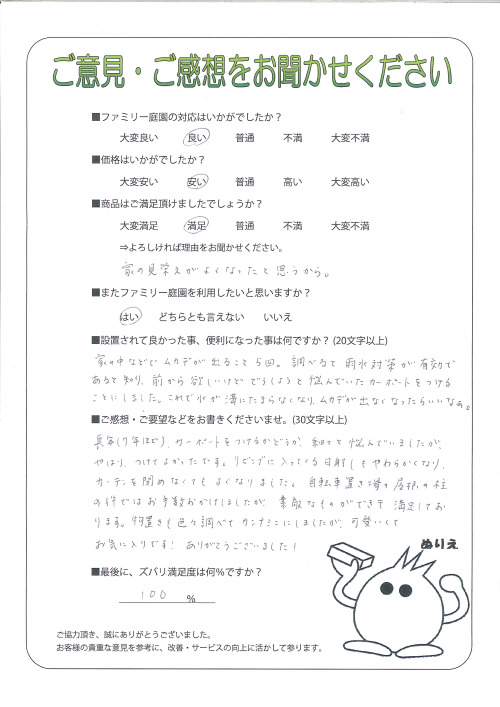 ご意見・ご感想をお聞かせください
■ファミリー庭園の対応はいかがでしたか？
大変良い 良い 普通 不満 大変不満
■価格はいかがでしたか？
大変安い 安い 普通 高い 大変高い
■商品はご満足頂けましたでしょうか？
大変満足 満足 普通 不満 大変不満
⇒よろしければ理由をお聞かせください。
家の見栄えがよくなったと思うから。
■またファミリー庭園を利用したいと思いますか？
はい どちらとも言えない いいえ
■設置されて良かった事、便利になった事は何ですか？(20文字以上)
家の中などでムカデが出ること5回。調べると雨水対策が有効で
あると知り、前から欲しいけどどうしようと悩んでいたカーポートをつける
ことにしました。これで水が溝にたまらなくなり、ムカデが出なくなったらいいなぁ。
■ご感想・ご要望などをお書きくださいませ。(30文字以上)
長年(7年ほど)、カーポートをつけるかどうか、細々と悩んでいましたが、
やはり、つけてよかったです。リビングに入ってくる日射しもやわらかくなり、
カーテンを閉めなくてもよくなりました。自転車置き場の屋根の柱
の件ではお手数おかけしましたが、素敵なものができて満足してお
ります。物置きも色々調べてサンナミにしましたが、可愛いくて
お気に入りです! ありがとうございました!
■最後に、ズバリ満足度は何％ですか？
100 %
ぬりえ
ご協力頂き、誠にありがとうございました。
お客様の貴重な意見を参考に、改善・サービスの向上に活かして参ります。